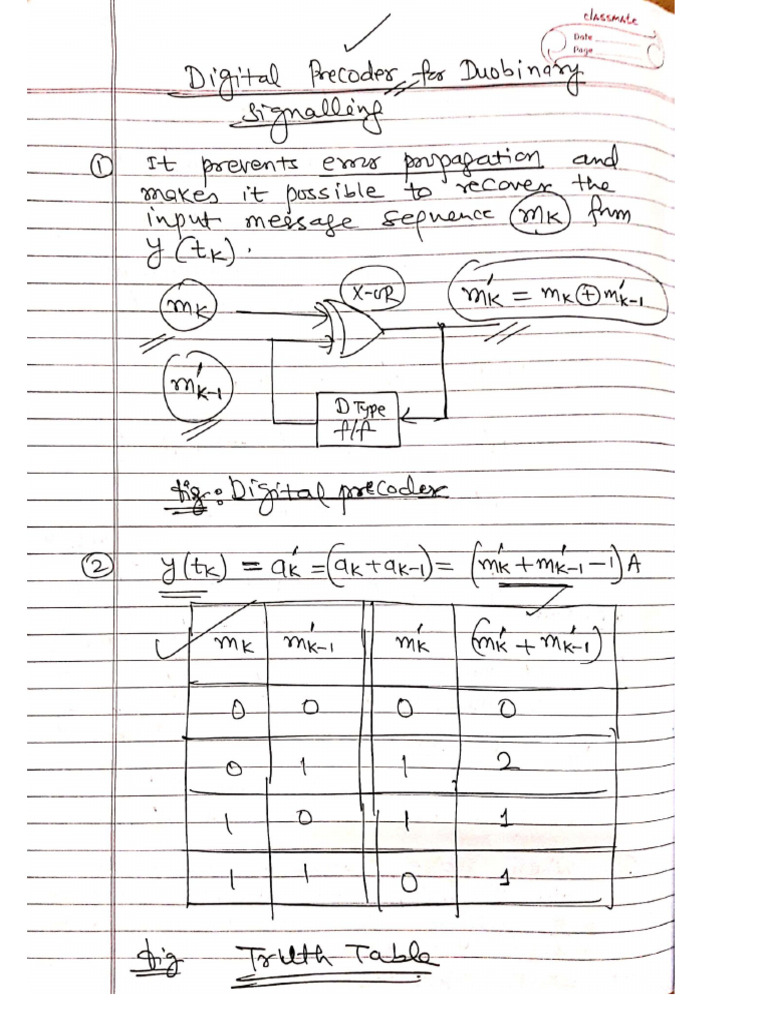 classmate
Date
Page
Digital Precoder for Duobinary
signalling
① It prevents error propagation and
makes it possible to recover the
input message sequence mK from
y(tK).
mK
X-OR
m'K = mK ⊕ m'K-1
m'K-1
D Type
f/f
fig: Digital precoder
② y(tK) = a'K = (aK + aK-1) = (m'K + m'K-1 - 1)A
mK m'K-1 m'K (m'K + m'K-1)
0 0 0 0
0 1 1 2
1 0 1 1
1 1 0 1
fig Truth Table